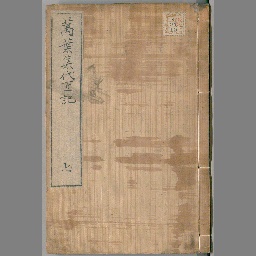 萬葉集代匠記
七